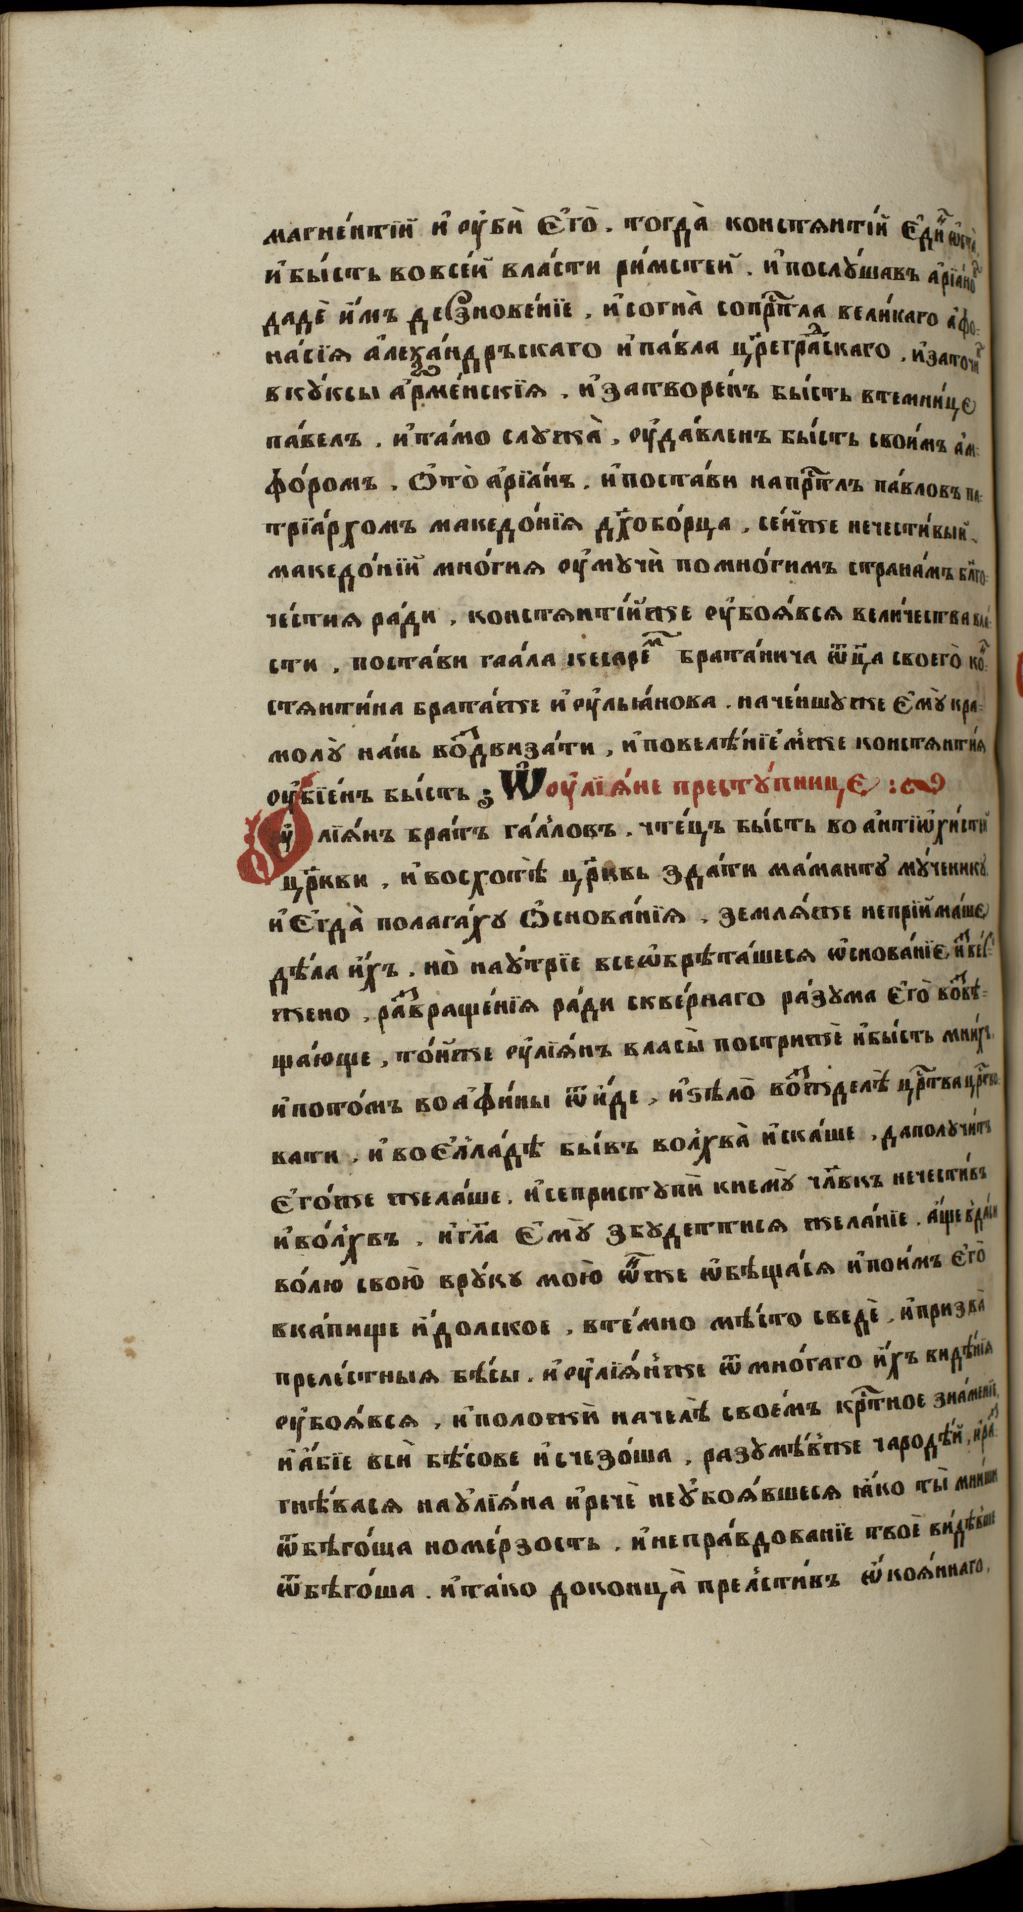 магне́нтїй и҆ ᲂу҆бѝ є҆го̀ . тогда̀ констянті́й є҆ди́н ѡ҆ста̀
и҆бы́сть вовсе́й вла́сти ри́мстей . и҆послꙋ́шавъ а҆рїа́но
дадѐ и҆́мъ дерзнове́нїе , и҆согна̀ сопрⷭ҇тла вели́каго а҆фо:
на́сїѧ а҆леѯа́ндръскаго и҆па́вла цр҃егра́дскаго , и҆заточѝ
вкꙋ́ксы а҆рме́нскїѧ , и҆затворе́нъ бы́сть втемни́це
па́велъ , и҆та́мо слꙋжа̀ , ᲂу҆да́вленъ бы́сть свои́мъ а҆м:
фо́ромъ , ѿто̀ а҆рїа́нъ . и҆поста́ви напрⷭ҇тлъ па́вловъ па:
трїа́рхомъ македо́нїѧ дх҃обо́рца , се́йже нечести́вый
македо́нїй мно́гиѧ ᲂу҆мꙋчѝ помно́гимъ страна́мъ бл҃го:
че́стиѧ ра́ди , констянті́йже ᲂу҆боѧ́всѧ вели́чества вла́:
сти , поста́ви гаа́ла кесаре́м брата́нича ѻ҆ц҃а своего̀ ко́н:
стянти́на брата́же и҆ᲂу҆льꙗ́нова . наче́ншꙋже є҆мꙋ̀ кра:
молꙋ̀ на́нь воздвиза́ти , и҆повелѣ́нїемже констянти́ѧ
ᲂу҆бїе́нъ бы́сть ; Ѡ҆ᲂу҆лїѧ́не престꙋ́пнице :
ᲂу҆лїѧ́нъ бра́тъ га́лловъ . чте́цъ бы́сть во а҆нтїѡхі́стѣй
цр҃кви , и҆восхотѣ̀ цр҃ковь зда́ти ма́мантꙋ мꙋ́ченикꙋ
и҆є҆гда̀ полага́хꙋ ѻ҆снова́нїѧ , землѧ́же непрїйма́ше
дѣ́ла и҆́хъ . но̀ наꙋ́трїе всеѡбрѣта́шесѧ ѡ҆снова́нїе, и҆зве́р:
жено , развраще́нїѧ ра́ди скве́рнаго ра́зꙋма є҆го̀ возвѣ:
ща́юще , то́йже ᲂу҆лїѧ́нъ власы̀ пострижѐ и҆бы́сть мни́хъ
и҆пото́мъ во а҆фи́ны ѿи҆́де , и҆ѕѣло̀ возжделѣ̀ црⷭ҇тва црⷭ҇тво:
вати , и҆ воє҆лла́дѣ бы́въ волхва̀ и҆ска́ше , даполꙋчи́тъ
є҆го́же жела́ше . и҆сепристꙋпѝ кнемꙋ̀ чл҃вкъ нечести́въ
и҆во́лхвъ . и҆гл҃а є҆мꙋ̀ збꙋдеттисѧ жела́нїе . а҆́ще вда́си
во́лю свою̀ врꙋ́кꙋ мою̀ ѻ҆́нже ѡ҆бѣща́сѧ и҆пои́мъ є҆го̀
вка́пище и҆́долское , вте́мно мѣ́сто сведѐ , и҆призва̀
преле́стныѧ бѣ́сы . и҆ᲂу҆лїѧ́нже ѿмно́гаго и҆́хъ видѣ́нїѧ
ᲂу҆боѧ́всѧ , и҆положѝ начелѣ̀ свое́мъ крⷭ҇тное зна́менїе,
и҆а҆́бїе всѝ бѣ́сове и҆счезо́ша , разꙋмѣ́вже чародѣ́й, и҆раз:
гнѣ́васѧ наꙋ҆лїѧ́на и҆речѐ неᲂу҆боѧ́вшесѧ ꙗ҆́ко ты̀ мни́ши
ѿбѣго́ша номе́рзость . и҆непра́вдованїе твоѐ ви́дѣвше
ѿбѣго́ша . и҆та́ко доконца̀ прелсти́въ ѻ҆коѧ́ннаго,